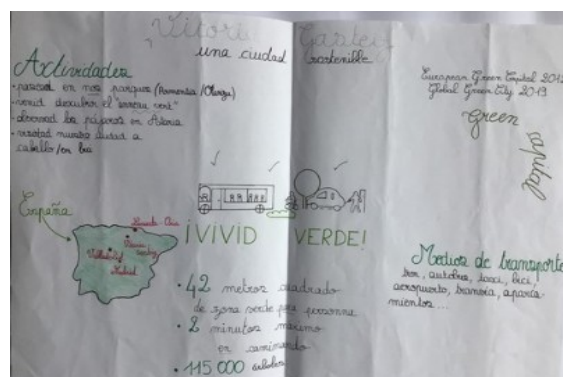 Vitoria Gasteiz
una ciudad sostenible
Actividades
- pasead en nos parques (Armentia /Olarizu)
- venid descubrir el "anneau vert"
- observad los pájaros en
- visitad nuestra ciudad a
caballo/en bici
European Green Capital 2012
Global Green City 2019
green capital
España
Madrid
¡VIVID VERDE!
• 42 metros cuadrado
de zona verde para personne
• 2 minutos máximo
en caminando
• 115 000 árboles
Medios de transporte
autobus, taxi, bici,
aeropuerto, tranvia, aparca-
mientos...